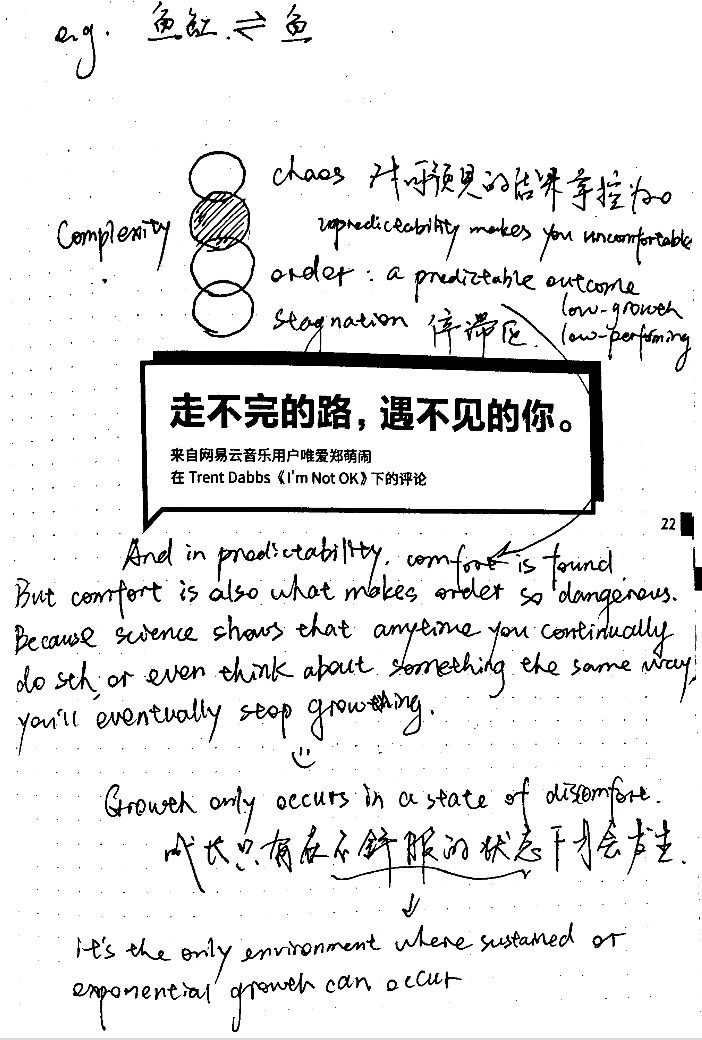 e.g. 鱼缸 ⇌ 鱼
chaos 对可预见的结果掌控为0
Complexity
predictability makes you uncomfortable
order : a predictable outcome
low-growth
stagnation 停滞区.
low-perfiming
走不完的路，遇不见的你。
来自网易云音乐用户唯爱郑萌闹
在 Trent Dabbs《I'm Not OK》下的评论
22
And in predictability, comfort is found
But comfort is also what makes order so dangerous.
Because science shows that anytime you continually
do sth, or even think about something the same way,
you'll eventually stop growthing.
Growth only occurs in a state of discomfort.
成长只有在不舒服的状态下才会发生.
it's the only environment where sustained or
exponential growth can occur